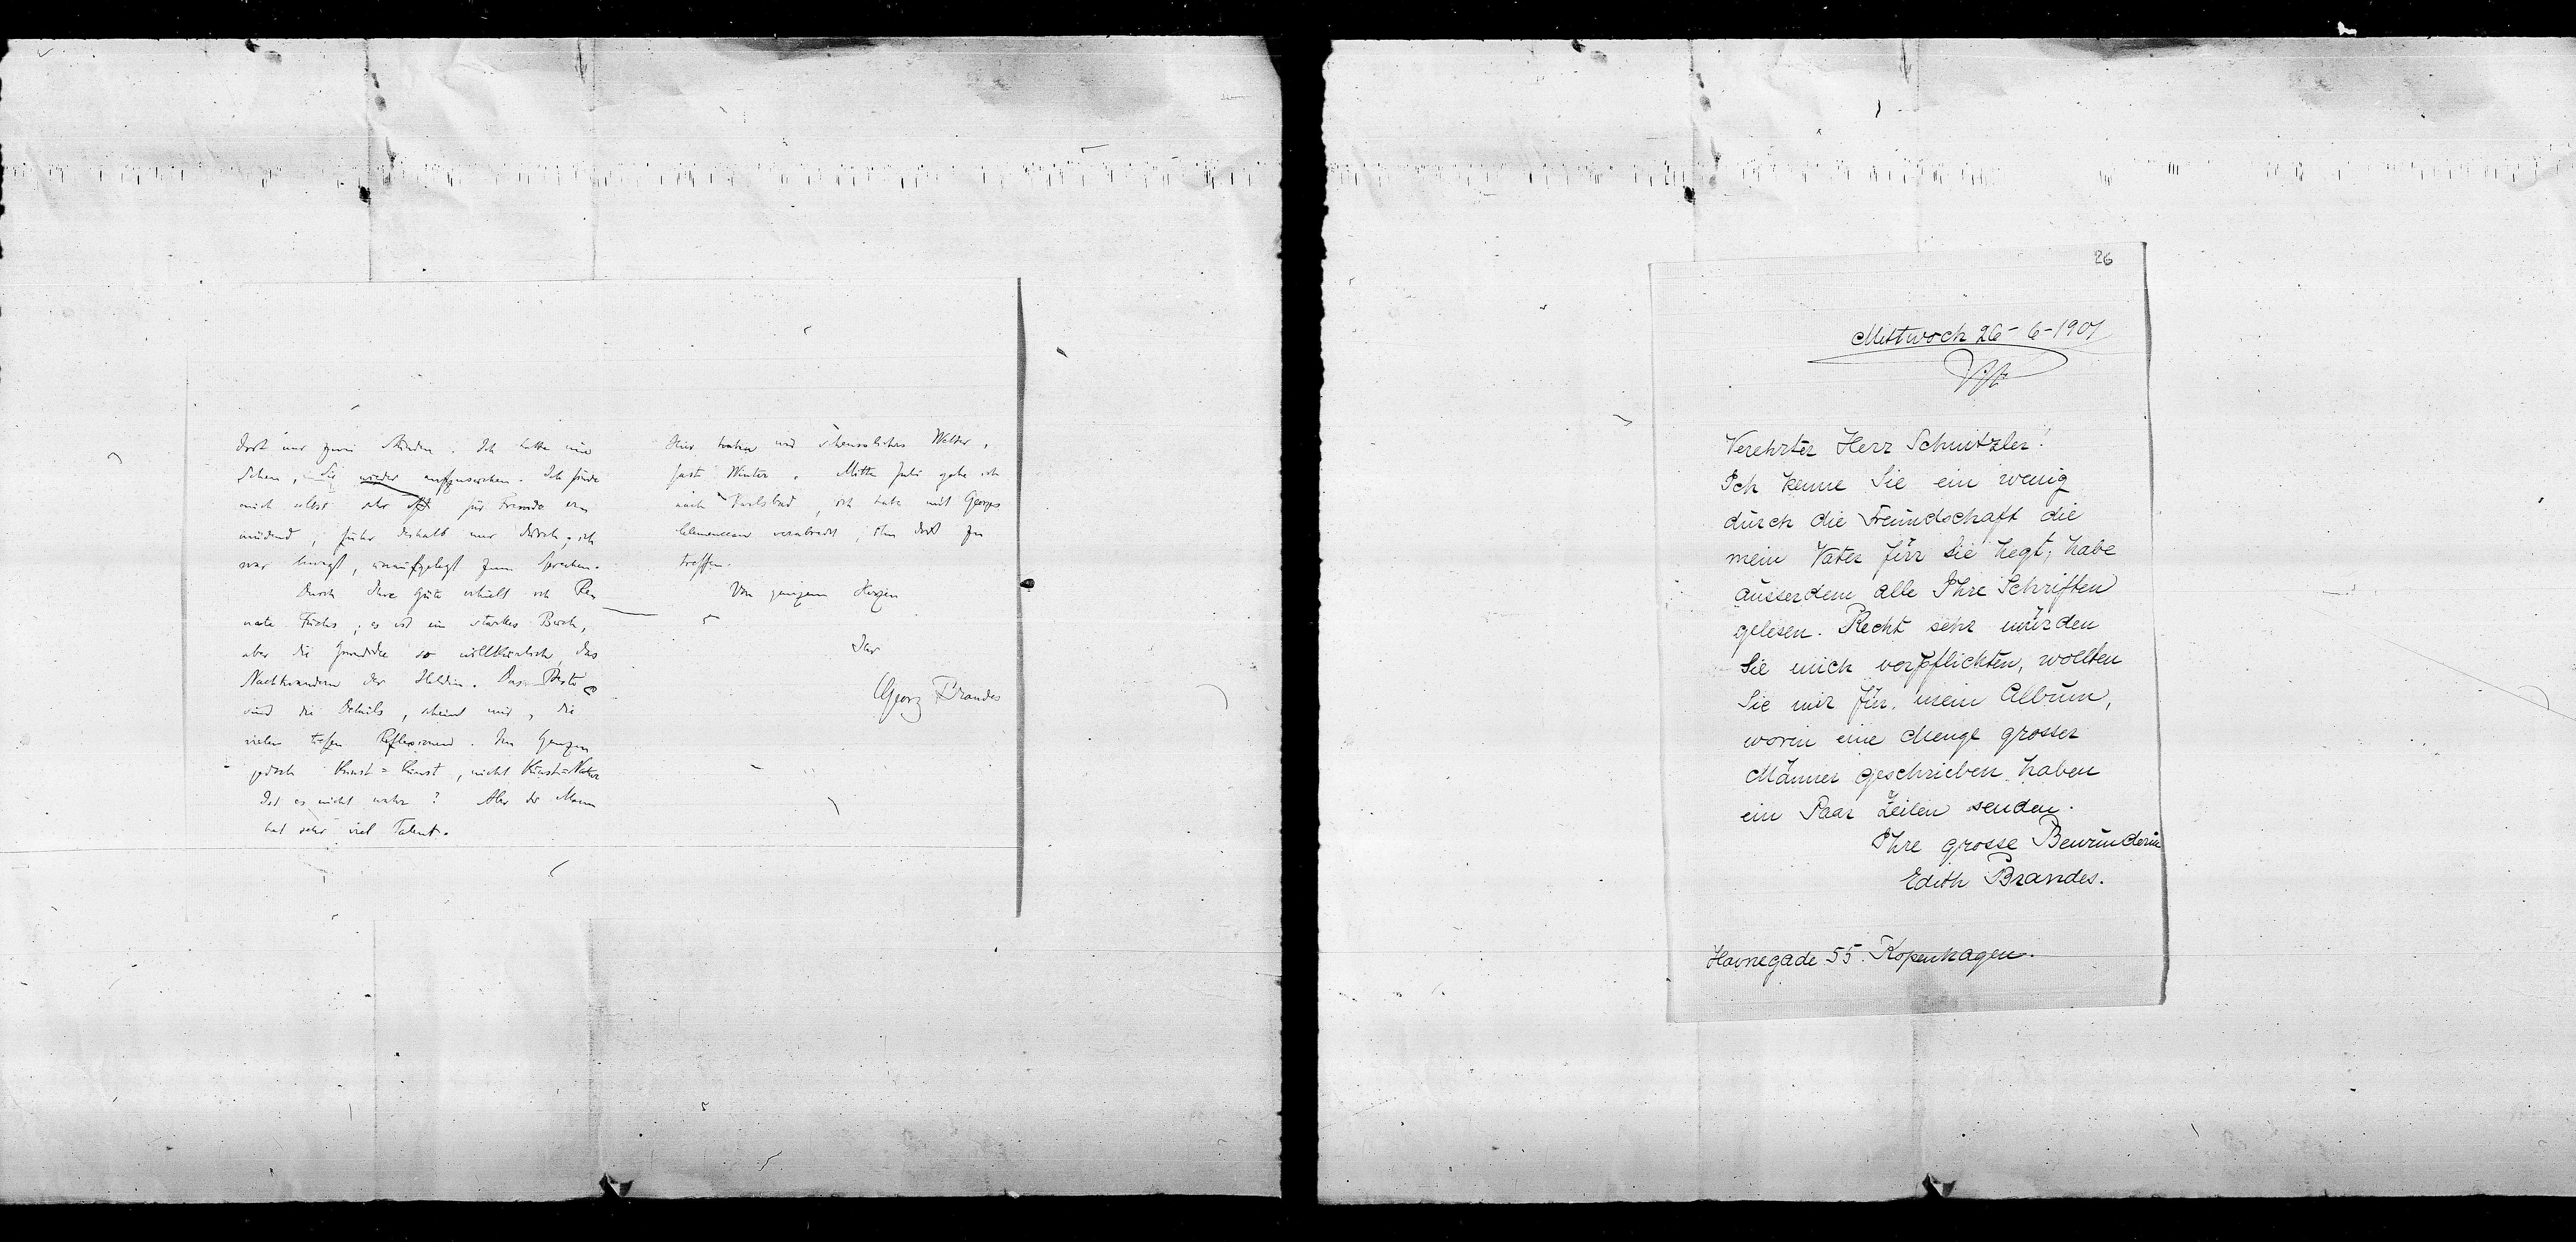 dort nur zwei Stunden. Ich hatte eine
Scheu, Sie wieder aufzusuchen. Ich finde
mich selbst sehr oft für Fremde er
müdend, fuhr deshalb nur durch; ich
war besorgt, unaufgelegt zum Sprechen.
Durch Ihre Güte erhielt ich Re
nate Fuchs; es ist ein starkes Buch,
aber die Grundidee so willkürlich, das
Nachtwandern der Heldin. Das Beste
sind die Details, scheint mir, die
vielen tiefen Reflexionen. Im Ganzen
jedoch Kunst=Kunst, nicht Kunst=Natur
Ist es nicht wahr? Aber der Mann
hat sehr viel Talent.
Hier haben wir scheussliches Wetter,
fast Winter. Mitte Juli gehe ich
nach Karlsbad, ich habe mit Georges
Clemenceau verabredet, ihn dort zu
treffen.
Von ganzem Herzen
Ihr
Georg Brandes
26
Mittwoch 26-6-1901
Verehrter Herr Schnitzler!
Ich kenne Sie ein wenig
durch die Freundschaft die
mein Vater für Sie hegt; habe
ausserdem alle Ihre Schriften
gelesen. Recht sehr würden
Sie mich verpflichten, wollten
Sie mir für mein Album,
worin eine Menge grosser
Männer geschrieben haben
ein Paar Zeilen senden.
Ihre grosse Bewunderin
Edith Brandes.
Havnegade 55. Kopenhagen.